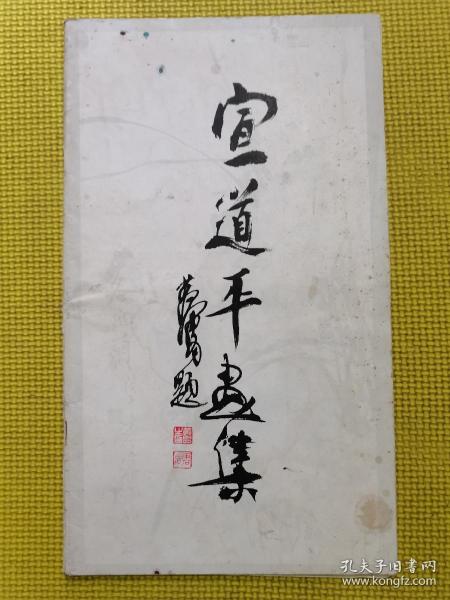 宣道平画集
题
孔夫子旧书网
www.kongfz.com